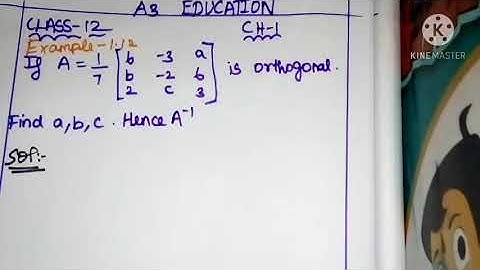 A3 EDUCATION
CLASS-12 CH-1
Example-1.12
If A = 1/7 [b -3 a
b -2 b
2 c 3] is orthogonal.
Find a,b,c. Hence A⁻¹
Sol:-
KINEMASTER